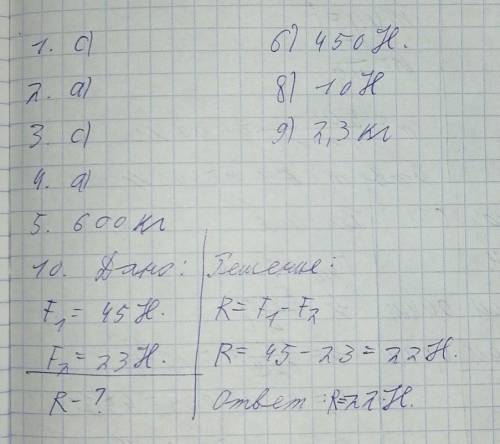 1. c)
2. a)
3. c)
4. a)
5. 600 кг
6) 450 Н.
8) 10 Н
9) 2,3 кг
10. Дано:
F₁ = 45 Н.
F₂ = 23 Н.
R - ?
Решение:
R = F₁ - F₂
R = 45 - 23 = 22 Н.
Ответ: R=22 Н.